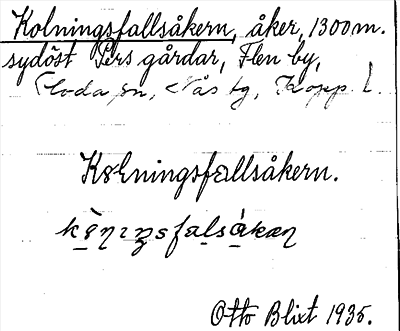 Kolningsfallsåkern, åker, 1300 m.
sydöst Pers gårdar, Flen by,
Floda sn, Nås tg, Kopp. l.
Kølningsfallsåkern.
Otto Blixt 1935.